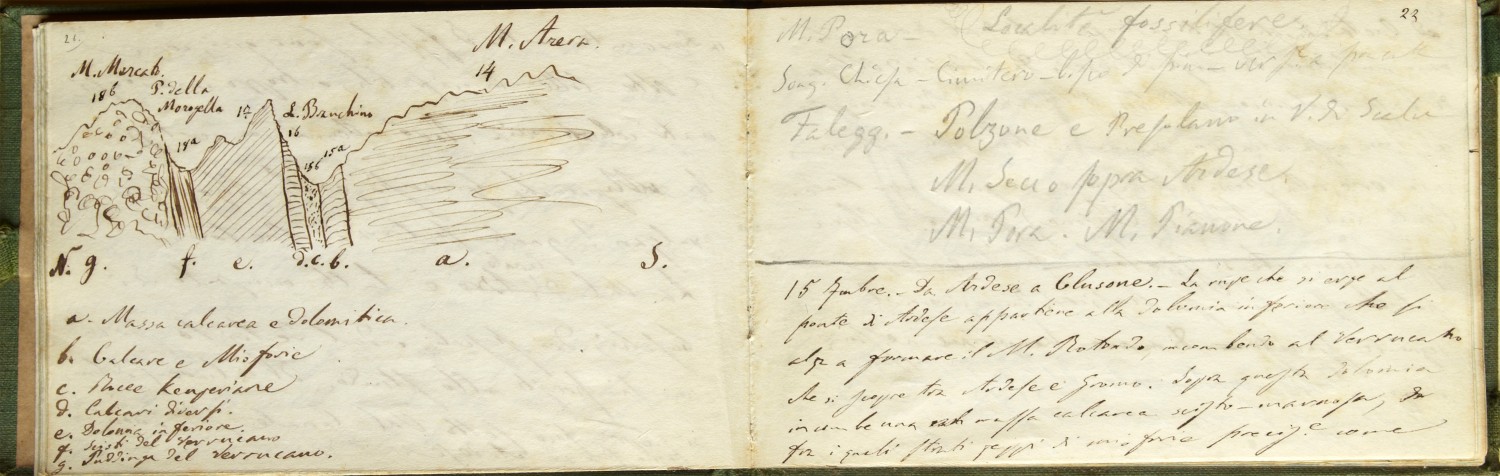 21.
M. Arera.
14
M. Mercat.
18b
P. della
Morozella
17
L. Branchino
16
18a
15b
15a
N. g. f. e. d. c. b. a. S.
a. Massa calcarea e dolomitica.
b. Calcare e Mioforie
c. Rocce Keuperiane
d. Calcari diversi.
e. Dolomia inferiore.
f. Scisti del Verrucano
g. Puddinga del Verrucano.
22
M. Pora - Località fossilifere
Song. Chiesa - Cimitero -
Falegg. - Polzone e Presolana in V. di Scalve
M. Secco sopra Ardese.
M. Pora. M. Pianone.
15 7mbre. - Da Ardese a Clusone. - La rupe che si erge al
ponte di Ardese appartiene alla Dolomia inferiore che si
alza a formare il M. Rotondo, incombendo al Verrucano
che si scopre tra Ardese e Gromo. Sopra questa dolomia
incombe una massa calcarea scisto-marnosa,
fra i quali strati zeppi di mioforie precise come